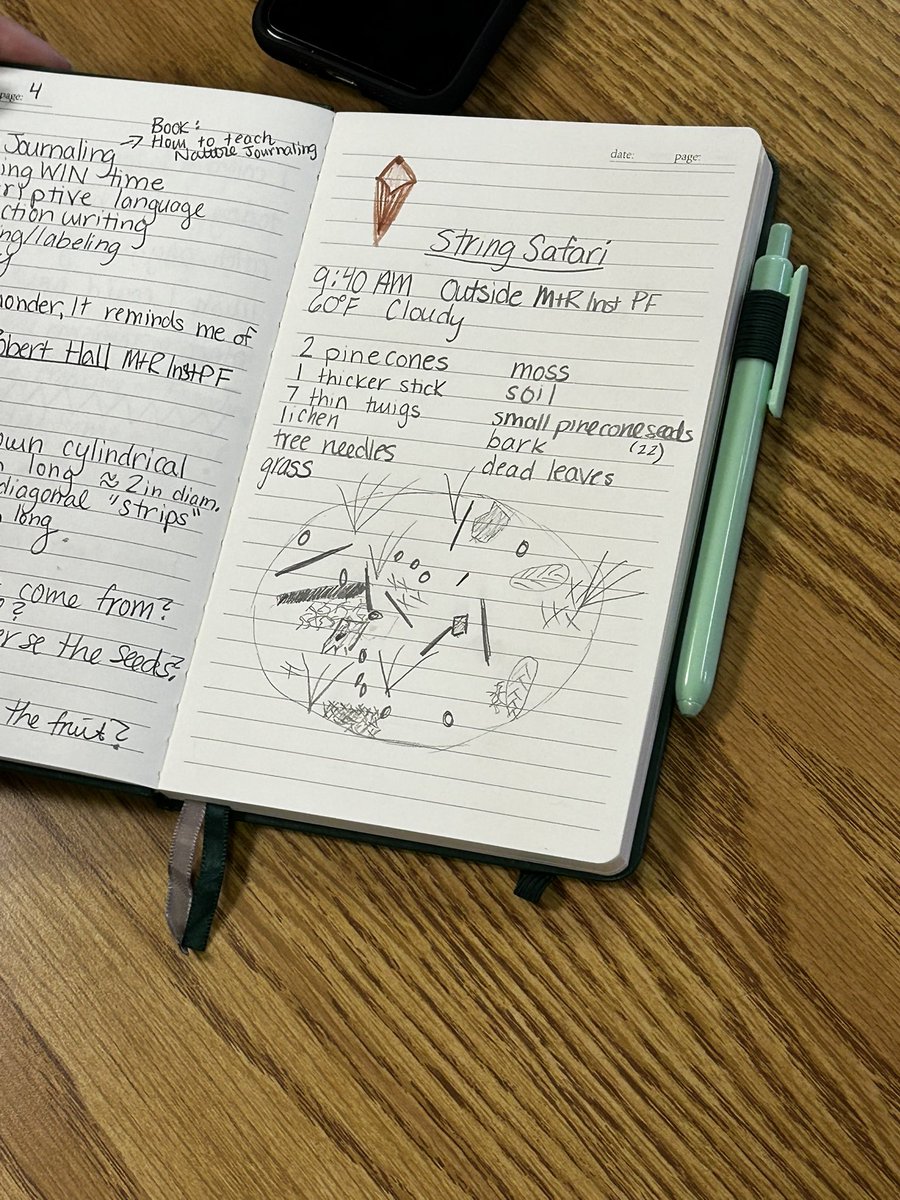 page: 4
Book:
Journaling → How to teach
Nature Journaling
ing WIN time
riptive language
ction writing
ng/labeling
y
wonder, It reminds me of
obert Hall M+R Inst PF
own cylindrical
long ≈ 2 in diam.
diagonal "strips"
long.
come from?
?
erse the seeds?
the fruit?
date: page:
String Safari
9:40 AM Outside M+R Inst PF
60°F Cloudy
2 pinecones
1 thicker stick
7 thin twigs
lichen
tree needles
grass
moss
soil
small pinecone seeds
bark (22)
dead leaves